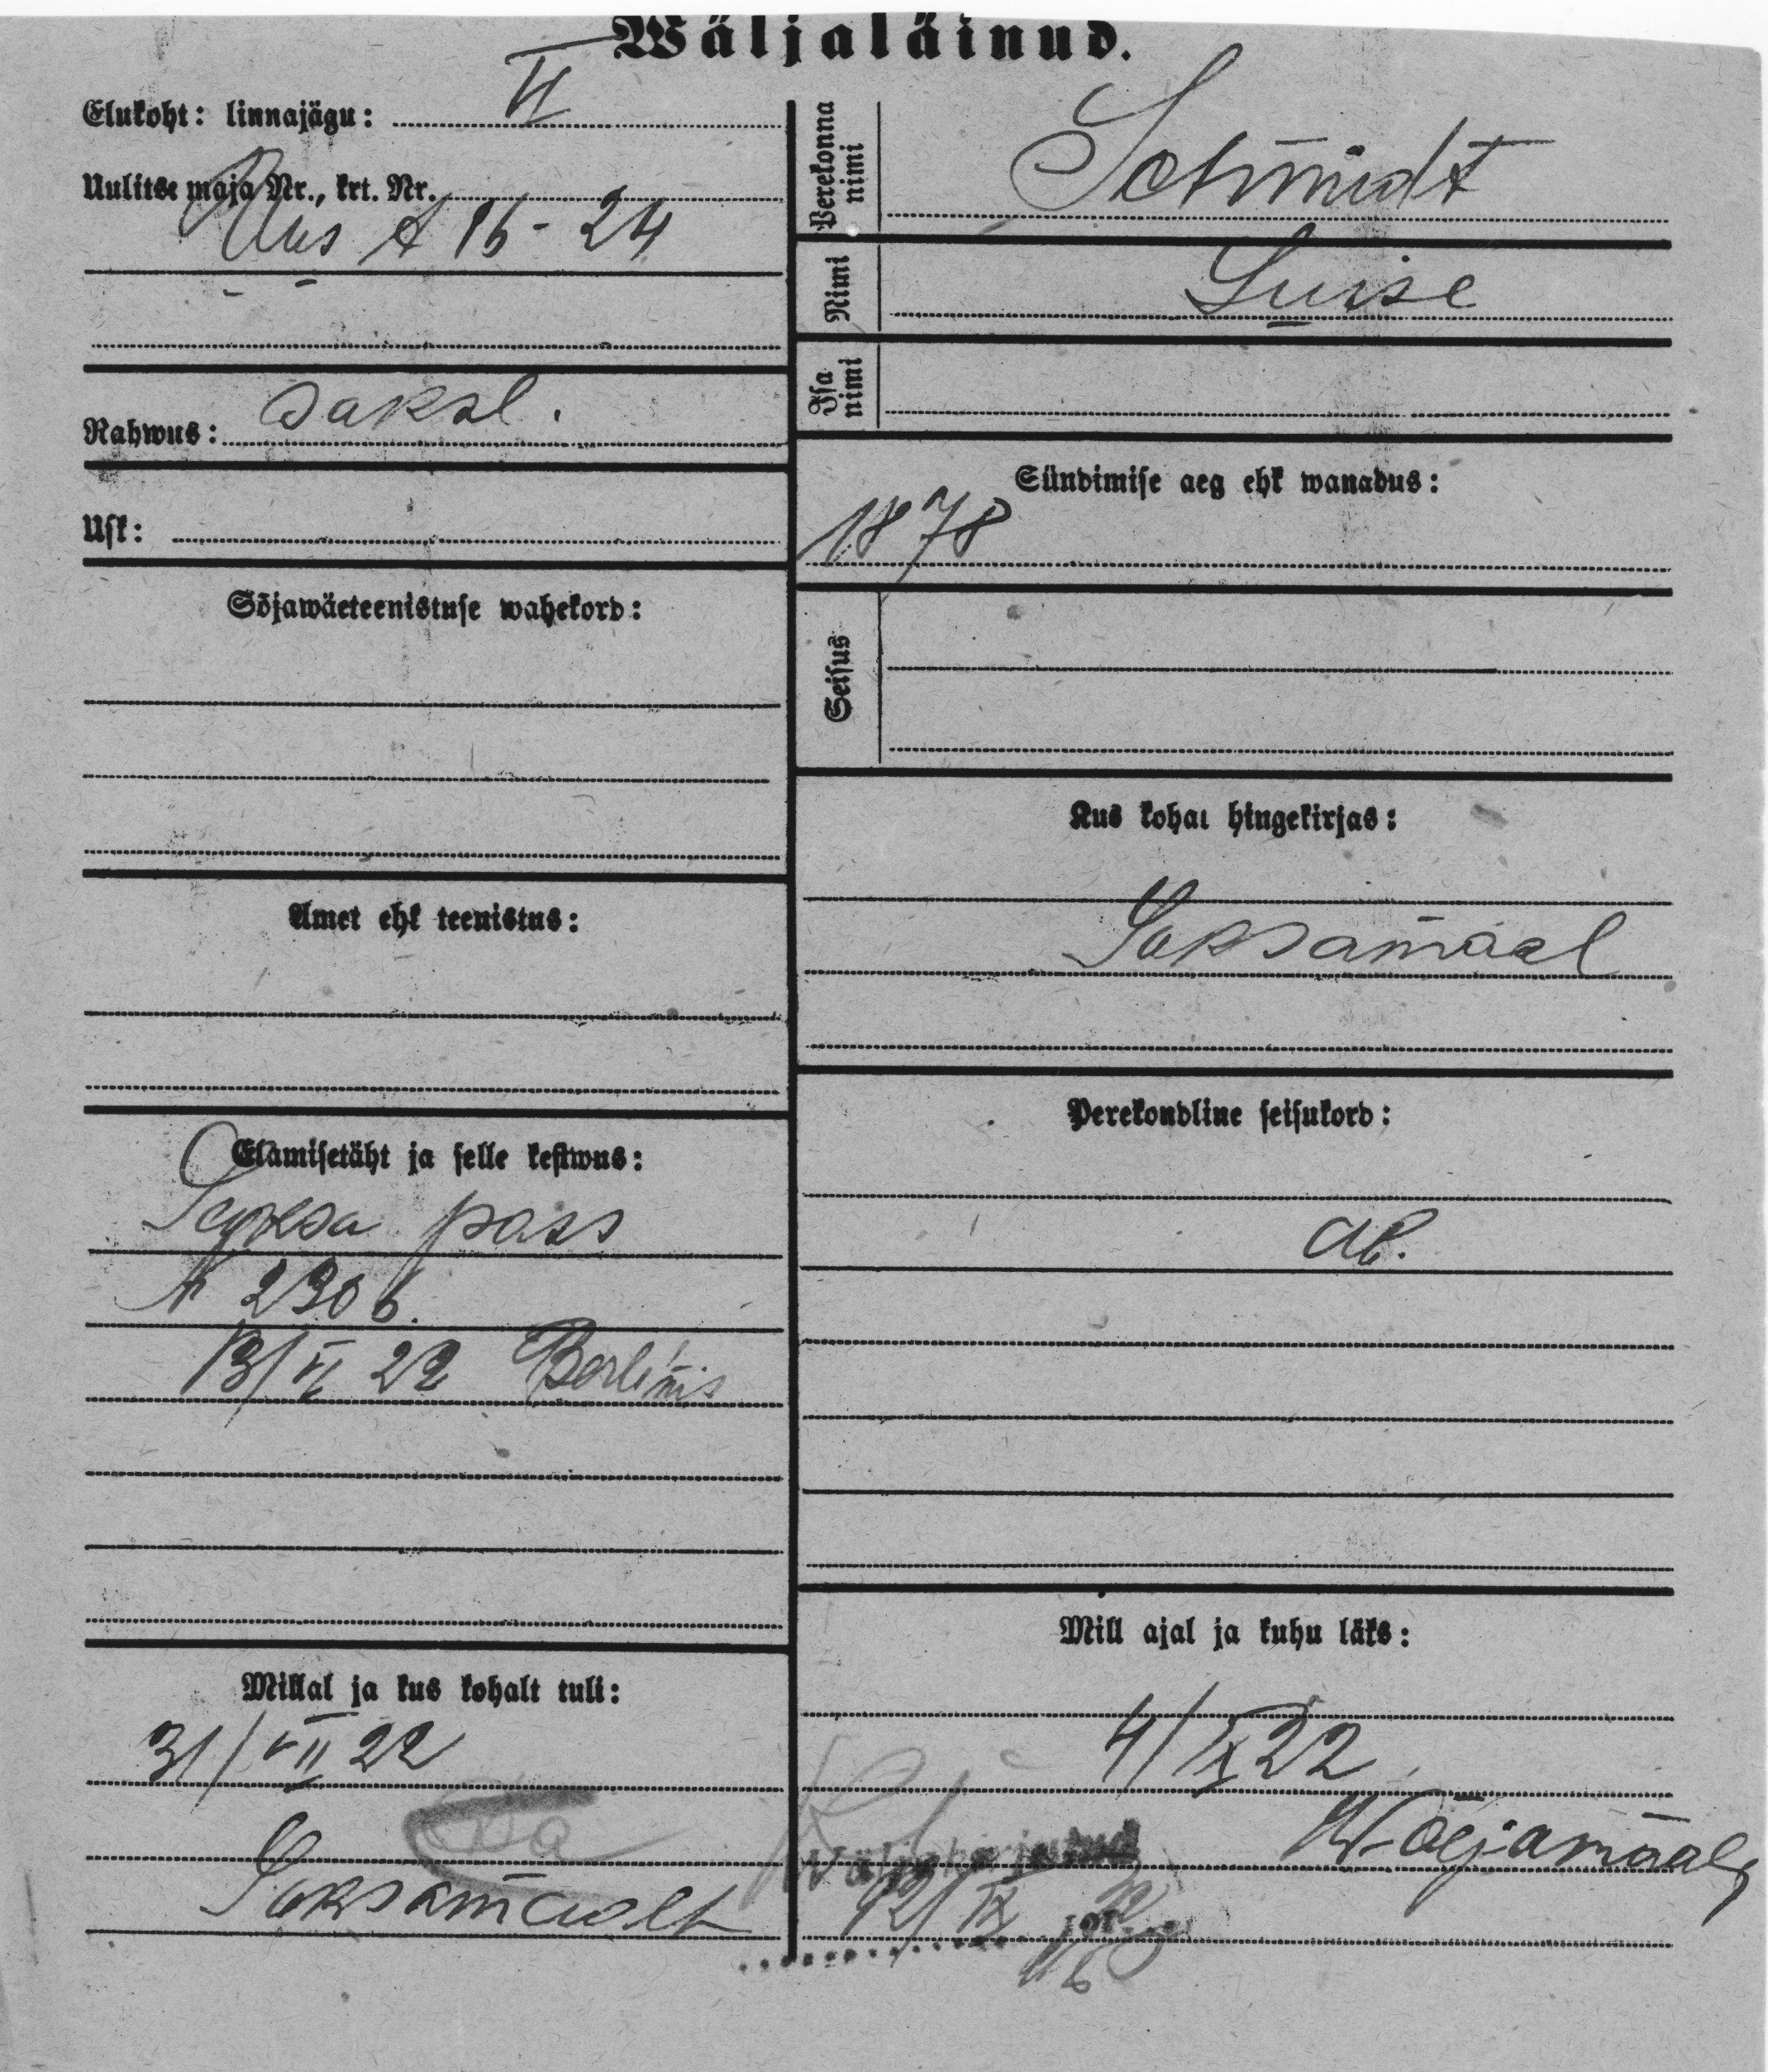 Wäljaläinud.
Elukoht: linnajägu: VI
Uulitse maja Nr., krt. Nr.
Uus A 16 - 24
Rahwus: saksl.
Usk:
Sõjawäeteenistuse wahekord:
Amet ehk teenistus:
Elamisetäht ja selle kestwus:
Saksa pass
N 2306.
13/VI 22 Berlinis
Millal ja kus kohalt tuli:
31/VII 22
Saksamaalt
Perekonna nimi
Schmidt
Nimi
Luise
Isa nimi
Sündimise aeg ehk wanadus:
1878
Seisus
Kus kohal hingekirjas:
Saksamaal
Perekondline seisukord:
ab.
Mill ajal ja kuhu läks:
4/IX 22
Wäljamaale
12/IX